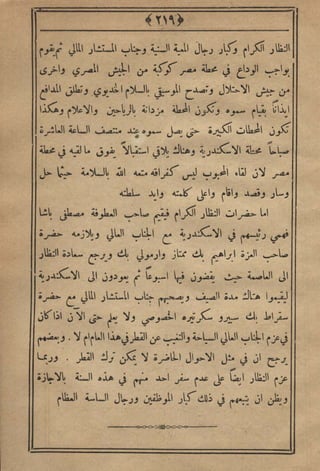 ﴿٢١٩﴾
النظار الكرام وكبار رجال المعية السنية وجناب المستشار المالي ثم يقوم
بواجب الوداع في محطة مصر كوكبة من الجيش المصري واخرى
من جيش الاحتلال وتصدح الموسيقى بالسلام الخديوي وتطلق المدافع
ايذاناً بقيام سموه وتكون المحطة مزدانة بالرياحين والاعلام وهكذا
تكون المحطات الكبيرة حتى يصل سموه عند منتصف الساعة العاشرة
صباحاً محطة الاسكندرية وهناك يلاقي استقبالاً يفوق ما لقيه في محطة
مصر لان لقاء المحبوب ليس كفراقه متعه الله بالسلامة حيثما حل
وسار وقصد واقام واعلى كلمته وايد سلطته
اما حضرات النظار الكرام فيقيم صاحب العطوفة مصطفى باشا
فهمي رئيسهم في الاسكندرية مع الجناب العالي ويلازمه حضرة
صاحب العزة ابراهيم بك ممتاز وارمولي بك ويرجع سعادة النظار
الى العاصمة حيث يقضون فيها اسبوعاً ثم يعودون الى الاسكندرية
ليقيموا هناك مدة الصيف ويصحبهم جناب المستشار المالي مع حضرة
سقراط بك سبيرو سكرتيره الخصوصي ولا يعلم حتى الآن اذا كان
في عزم الجناب العالي السياحة والتغيب عن القطر في هذا العام ام لا . وبعضهم
يرجح ان في مثل الاحوال الحاضرة لا يمكن ترك القطر . وربما
عزم النظار ايضاً على عدم سفر احد منهم في هذه السنة بالاجازة
ويظن ان يتبعهم في ذلك كبار الموظفين ورجال الساسة العظام